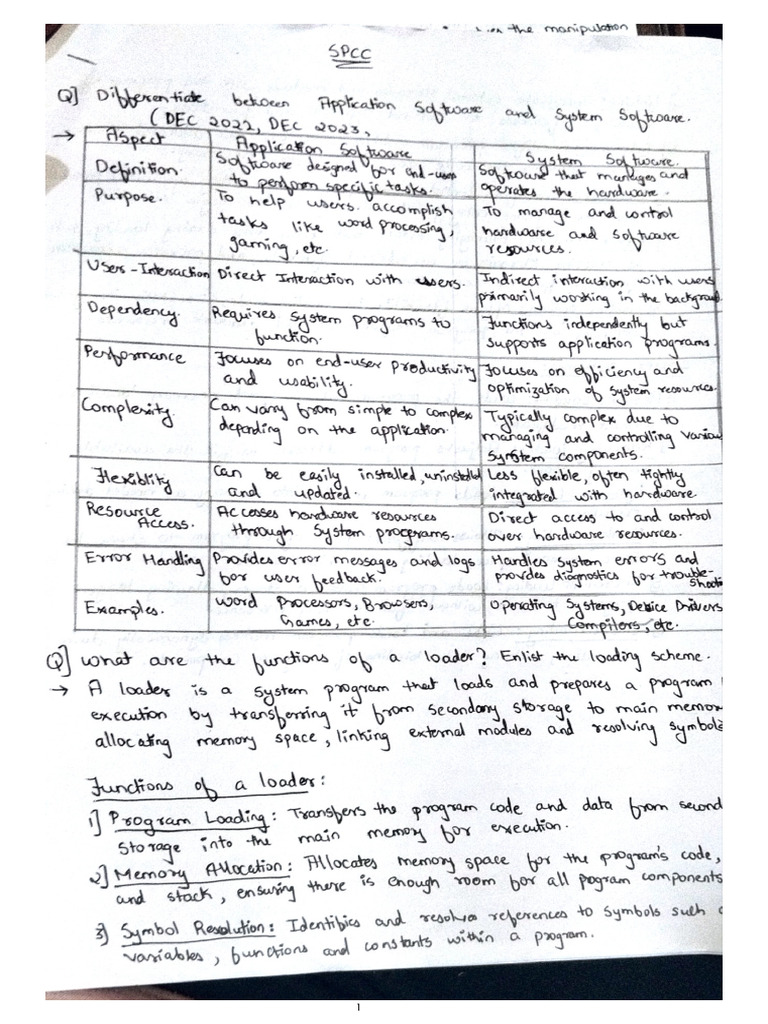 the manipulation
SPCC
Q] Differentiate between Application Software and System Software.
(DEC 2022, DEC 2023,
→ Aspect | Application Software | System Software.
Definition. | Software designed for end-users to perform specific tasks. | Software that manages and operates the hardware.
Purpose. | To help users accomplish tasks like word processing, gaming, etc. | To manage and control hardware and software resources.
Users-Interaction | Direct Interaction with users. | Indirect interaction with users primarily working in the backgroun
Dependency. | Requires system programs to function. | Functions independently but supports application programs.
Performance | Focuses on end-user productivity and usability. | Focuses on efficiency and optimization of system resources.
Complexity. | Can vary from simple to complex depending on the application. | Typically complex due to managing and controlling variou system components.
Flexiblity | Can be easily installed, uninstalled and updated. | Less flexible, often tightly integrated with hardware
Resource Access. | Accesses hardware resources through system programs. | Direct access to and control over hardware resources.
Error Handling | Provides error messages and logs for user feedback. | Handles system errors and provides diagnostics for trouble-shooti
Examples. | Word Processors, Browsers, Games, etc. | Operating Systems, Device Drivers Compilers, etc.
Q] What are the functions of a loader? Enlist the loading scheme.
→ A loader is a system program that loads and prepares a program
execution by transferring it from secondary storage to main memor
allocating memory space, linking external modules and resolving symbols
Functions of a loader:
1] Program Loading: Transfers the program code and data from second
storage into the main memory for execution.
2] Memory Allocation: Allocates memory space for the program's code,
and stack, ensuring there is enough room for all pogram components
3] Symbol Resolution: Identifies and resolves references to symbols such a
variables, functions and constants within a program.
1